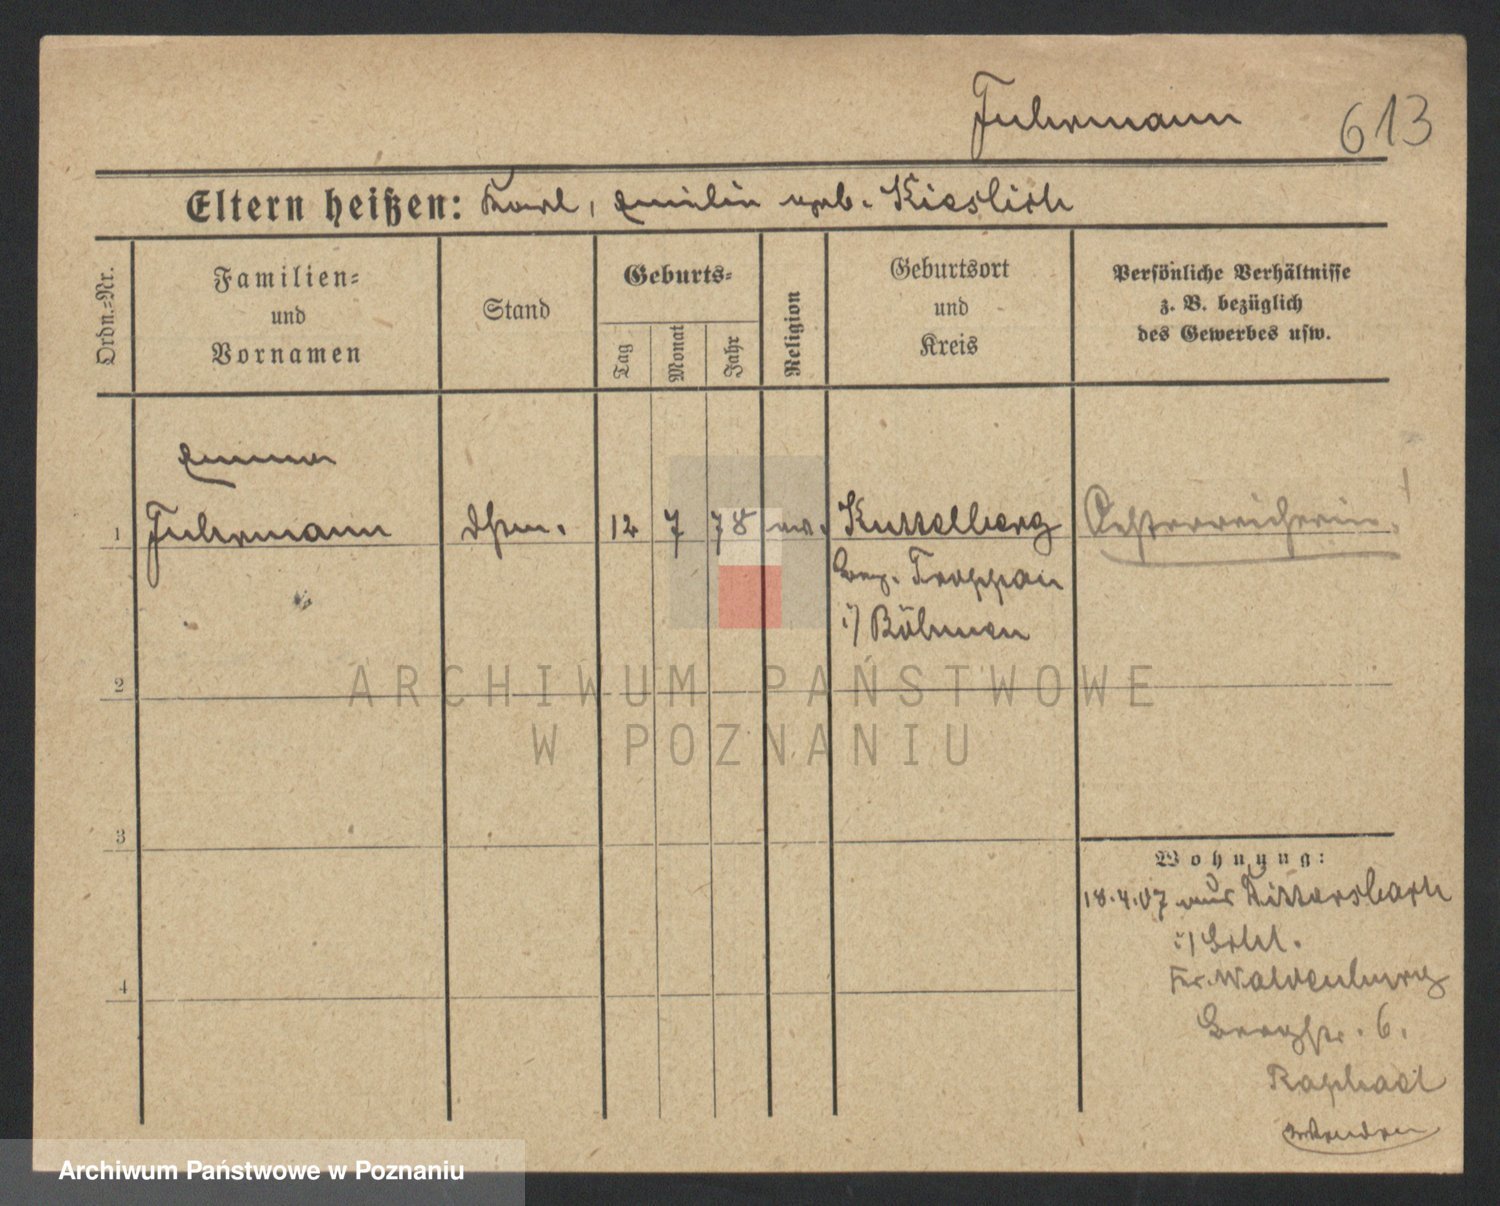 Fuhrmann 613
Eltern heißen: Karl, Emilie geb. Kieslich
Ordn.=Nr.
Familien=
und
Vornamen
Stand
Geburts=
Tag
Monat
Jahr
Religion
Geburtsort
und
Kreis
Persönliche Verhältnisse
z. B. bezüglich
des Gewerbes usw.
Emma
1 Fuhrmann 12 7 78 Kuttelberg Oesterreicherin.
Bez. Troppau
i/ Böhmen
2
3
4
Wohnung:
18.4.07 aus Dittersbach
i/ Schl.
Kr. Waldenburg
Bergstr. 6.
Raphael
ARCHIWUM PAŃSTWOWE
W POZNANIU
Archiwum Państwowe w Poznaniu